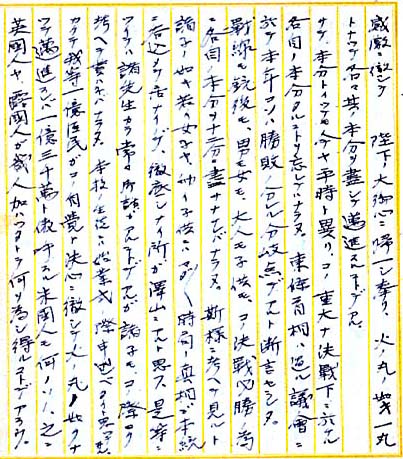 感激ニ徹シテ　陛下ノ大御心ニ帰一シ奉リ、火ノ丸ノ如ク一丸
トナツテ各々其ノ本分ヲ盡シテ邁進スルコトデアル。
サテ、本分ト云フモノハ平時ト異リ、コノ重大ナ決戦下ニ於ケル
各自ノ本分タルコトヲ忘レテハナラヌ。東條首相ハ過ル議會ニ
於テ本年コソハ勝敗ノ分ル分岐点デアルト断言セラレタ。
戦線モ銃後モ、男モ女モ、大人モ子供モ、コノ決戦必勝ノ為
ニ各自ノ本分ヲ十二分ニ盡サナケレバナラヌ。斯様ニ考ヘテ見ルト
諸子ノ如キ若イ女子ヤ幼イ子供ニハマダ時局ノ真相ガ本統
ニ呑込メテ居ナイデ、徹底シナイ所ガ澤山アルト思フ。是等ニ
ツイテハ諸先生カラ常々御話ガアルコトデアルガ諸子モコノ際ヨク
考ヘテ貰ハネバナラヌ。本校ノ生徒ニハ始業式ノ際申述ベタ
カクテ我等一億臣民ガコノ覚悟ト決心ニ徹シテ火ノ丸ノ如クナ
ツテ邁進スレバ一億三千萬ト傲呼スル米国人モ何ノソノ、之ニ
英国人ヤ、露国人ガ幾人加ハツタトテ何ヲ為シ得ルコトデアラウ。